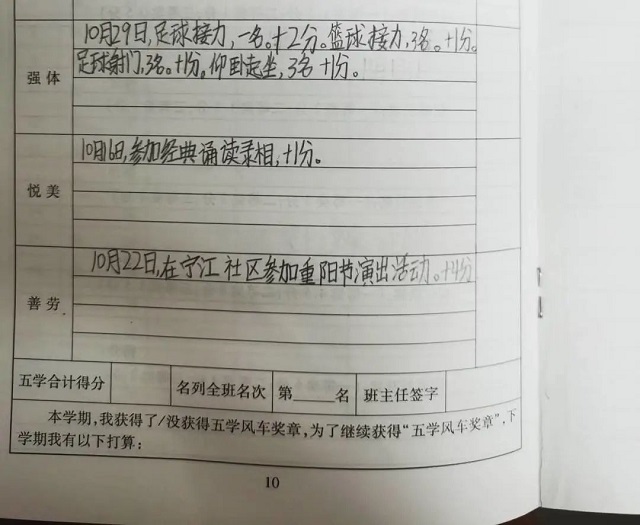 10月29日,足球接力,一名。+2分。篮球接力,3名。+1分。
强体
足球射门,3名。+1分。仰卧起坐,3名 +1分。
10月6日,参加经典诵读录相,+1分。
悦美
10月22日,在宁江社区参加重阳节演出活动。+4分
善劳
五学合计得分 名列全班名次 第____名 班主任签字
本学期,我获得了/没获得五学风车奖章,为了继续获得“五学风车奖章”,下
学期我有以下打算:
10